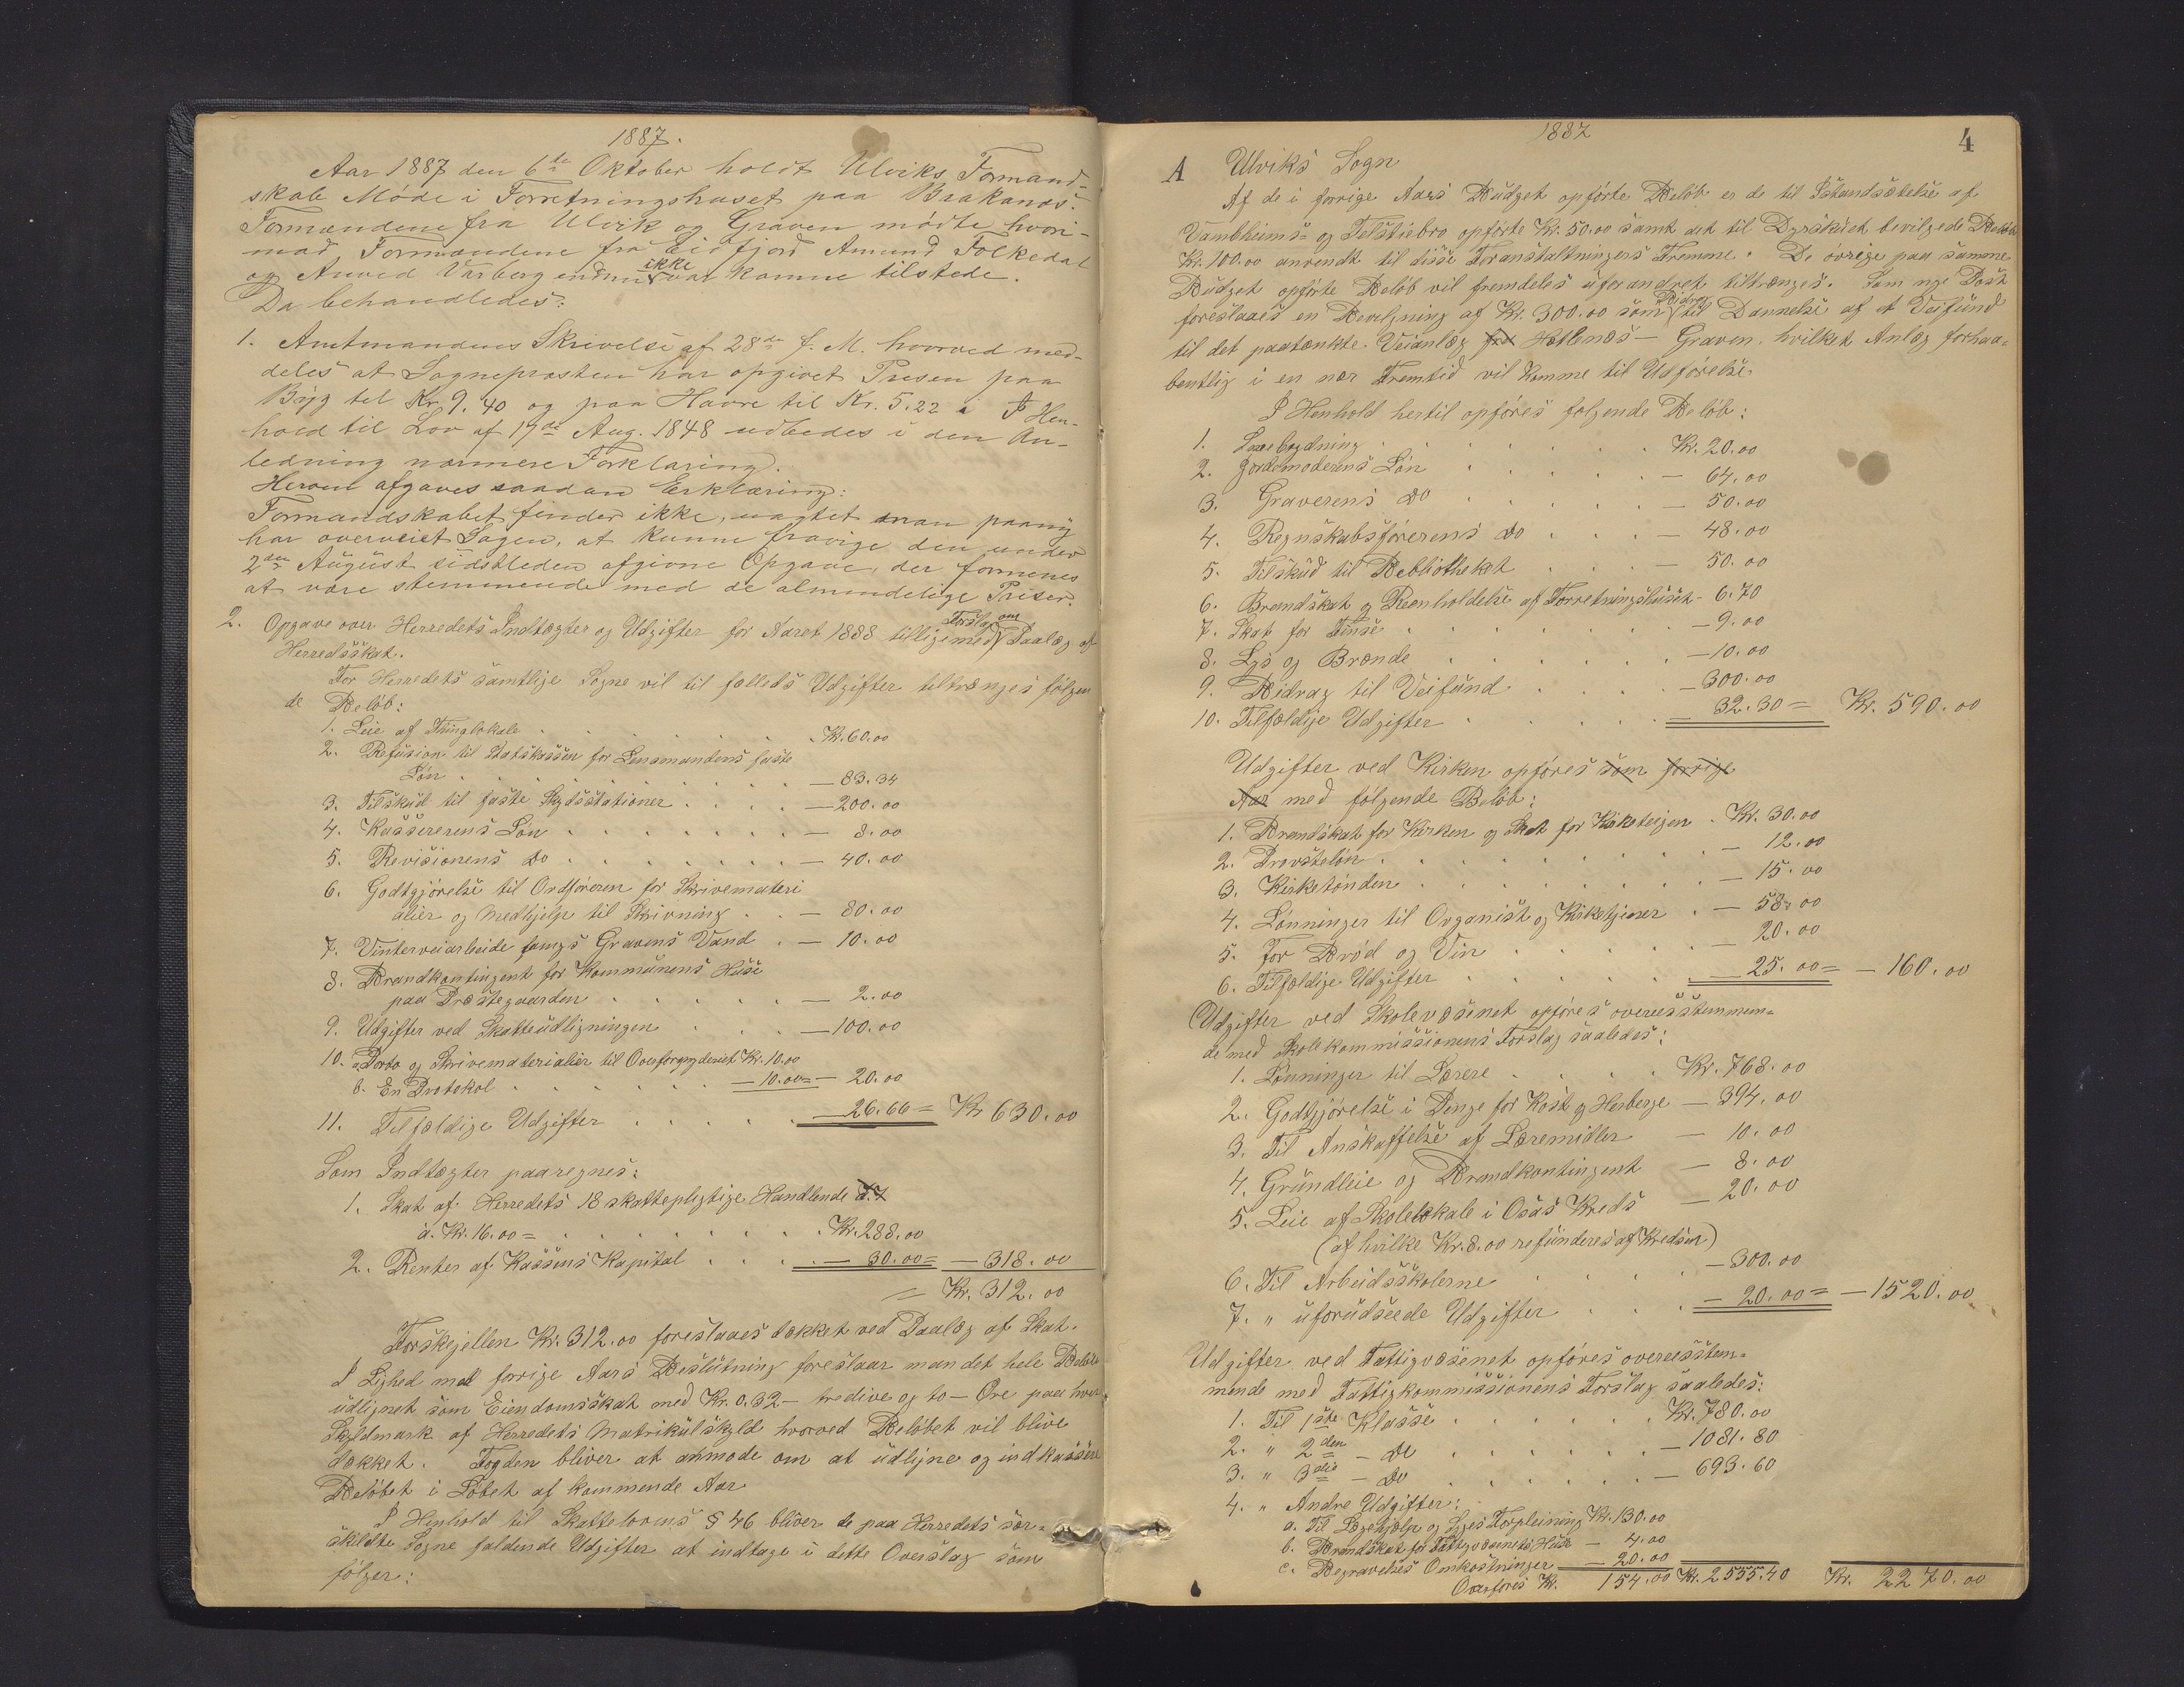 1887.
Aar 1887 den 6te Oktober holdt Ulviks Formand-
skab Møde i Forretningshuset paa Brakanes.
Formændene fra Ulvik og Graven mødte hvori-
mod Formændene fra Eidfjord Amund Folkedal
og Anved Varberg endnu ikke var komne tilstede.
Da behandledes:
1. Amtmandens Skrivelse af 28de f. M. hvorved med-
deles at Sognepræsten har opgivet Prisen paa
Byg til Kr. 9.40 og paa Havre til Kr. 5.22. I Hen-
hold til Lov af 17de Aug. 1848 udbedes i den An-
ledning nærmere Forklaring.
Herom afgaves saadan Erklæring:
Formandskabet finder ikke, uagtet man paany
har overveiet Sagen, at kunne fravige den under
2den August sidstleden afgivne Opgave, der formenes
at være stemmende med de almindelige Priser.
2. Opgave over Herredets Indtægter og Udgifter for Aaret 1888 tilligemed Forslag om Paalæg af
Herredsskat.
For Herredets samtlige Sogne vil til fælleds Udgifter tiltrænges følgen
de Beløb:
1. Leie af Thinglokale . . . . . . . Kr. 60.00
2. Refusion til Statskassen for Lensmandens faste
Løn . . . . . . . — 83.34
3. Tilskud til faste Skydsstationer . . . . — 200.00
4. Kassererens Løn . . . . . . . — 8.00
5. Revisionens Do . . . . . . . — 40.00
6. Godtgjørelse til Ordføreren for Skrivemateri
alier og Medhjelp til Skrivning . . — 80.00
7. Vinterveiarbeide langs Gravens Vand . — 10.00
8. Brandkontingent for Kommunens Huse
paa Præstegaarden . . . . . — 2.00
9. Udgifter ved Skatteudligningen . . . — 100.00
10. a. Porto og Skrivematerialier til Overformynderiet Kr. 10.00
b. En Protokol . . . . . . — 10.00 = — 20.00
11. Tilfældige Udgifter . . . . . — 26.66 = Kr 630.00
Som Indtægter paaregnes:
1. Skat af Herredets 18 skattepligtige Handlende
à. Kr. 16.00 = . . . . . . . Kr. 288.00
2. Renter af Kassens Kapital . . . . — 30.00 = — 318.00
= Kr. 312.00
Forskjellen Kr. 312.00 foreslaaes dækket ved Paalæg af Skat.
I Lighed med forrige Aars Beslutning foreslaar man det hele Beløb
udlignet som Eiendomsskat med Kr. 0.32 — tredive og to — Øre paa hver
Skyldmark af Herredets Matrikulskyld hvorved Beløbet vil blive
dækket. Fogden bliver at anmode om at udligne og indkassere
Beløbet i Løbet af kommende Aar
I Henhold til Skattelovens § 46 bliver de paa Herredets sær-
skildte Sogne faldende Udgifter at indtage i dette Overslag som
følger:
1887
4
A Ulviks Sogn
Af de i forrige Aars Budget opførte Beløb er de til Istandsættelse af
Vambheims- og Telstiebro opførte Kr. 50.00 samt det til Dyrskuet bevilgede Beløb
Kr. 100.00 anvendt til disse Foranstaltningers Fremme. De øvrige paa samme
Budget opførte Beløb vil fremdeles uforandret tiltrænges. Som nye Post
foreslaaes en Bevilgning af Kr. 300.00 som Bidrag til Dannelse af et Veifund
til det paatænkte Veianlæg fra Hætlenæs — Graven, hvilket Anlæg forhaa-
bentlig i en nær Fremtid vil komme til Udførelse.
I Henhold hertil opføres følgende Beløb:
1. . . . . . . Kr. 20.00
2. Jordemoderens Løn . . . . . — 64.00
3. Graverens Do . . . . . — 50.00
4. Regnskabsførerens Do . . . — 48.00
5. Tilskud til Bibliotheket . . . — 50.00
6. Brandskat og Reenholdelse af Forretningshuset — 6.70
7. Skat for Finse . . . . . . — 9.00
8. Lys og Brænde . . . . . . — 10.00
9. Bidrag til Veifund . . . . — 300.00
10. Tilfældige Udgifter . . . . . — 32.30 = Kr. 590.00
Udgifter ved Kirken opføres som forrige
Aar med følgende Beløb:
1. Brandskat for Kirken og Skat for Kirketeigen . Kr. 30.00
2. Provsteløn . . . . . . . . — 12.00
3. Kirketønden . . . . . . . — 15.00
4. Lønninger til Organist og Kirketjener . — 58.00
5. For Brød og Vin . . . . . — 20.00
6. Tilfældige Udgifter . . . . . . — 25.00 = — 160.00
Udgifter ved Skolevæsenet opføres overeesstemmen-
de med Skolekommissionens Forslag saaledes:
1. Lønninger til Lærere . . . . Kr. 768.00
2. Godtgjørelse i Penge for Kost og Herberge — 394.00
3. Til Anskaffelse af Læremidler — 10.00
4. Grundleie og Brandkontingent — 8.00
5. Leie af Skolelokale i Osas Kreds — 20.00
(af hvilke Kr. 8.00 refunderes af Kredsen)
6. Til Arbeidsskolerne . . . . — 300.00
7. " uforudseede Udgifter . . . — 20.00 = — 1520.00
Udgifter ved Fattigvæsenet opføres overeesstem-
mende med Fattigkommissionens Forslag saaledes:
1. Til 1ste Klasse . . . . . . Kr. 780.00
2. " 2den — Do . . . . . . — 1081.80
3. " 3die — Do . . . . . . — 693.60
4. " Andre Udgifter:
a. Til Lægehjælp og Syges Forpleining Kr. 130.00
b. Brandskat for Fattigvæsenets Huse — 4.00
c. Begravelses Omkostninger — 20.00
Overføres Kr. 154.00 Kr. 2555.40 Kr. 2270.00